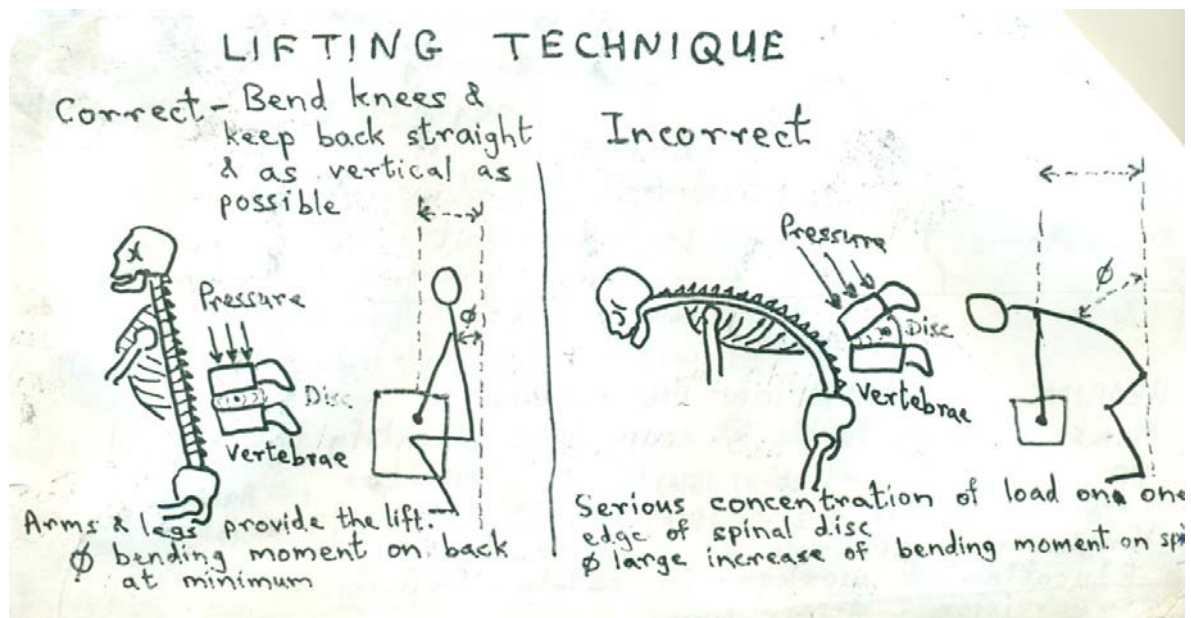 LIFTING TECHNIQUE
Correct - Bend knees &
keep back straight
& as vertical as
possible
Pressure
φ
Disc
Vertebrae
Arms & legs provide the lift.
φ bending moment on back
at minimum
Incorrect
Pressure
φ
Disc
Vertebrae
Serious concentration of load on one
edge of spinal disc
φ large increase of bending moment on spi